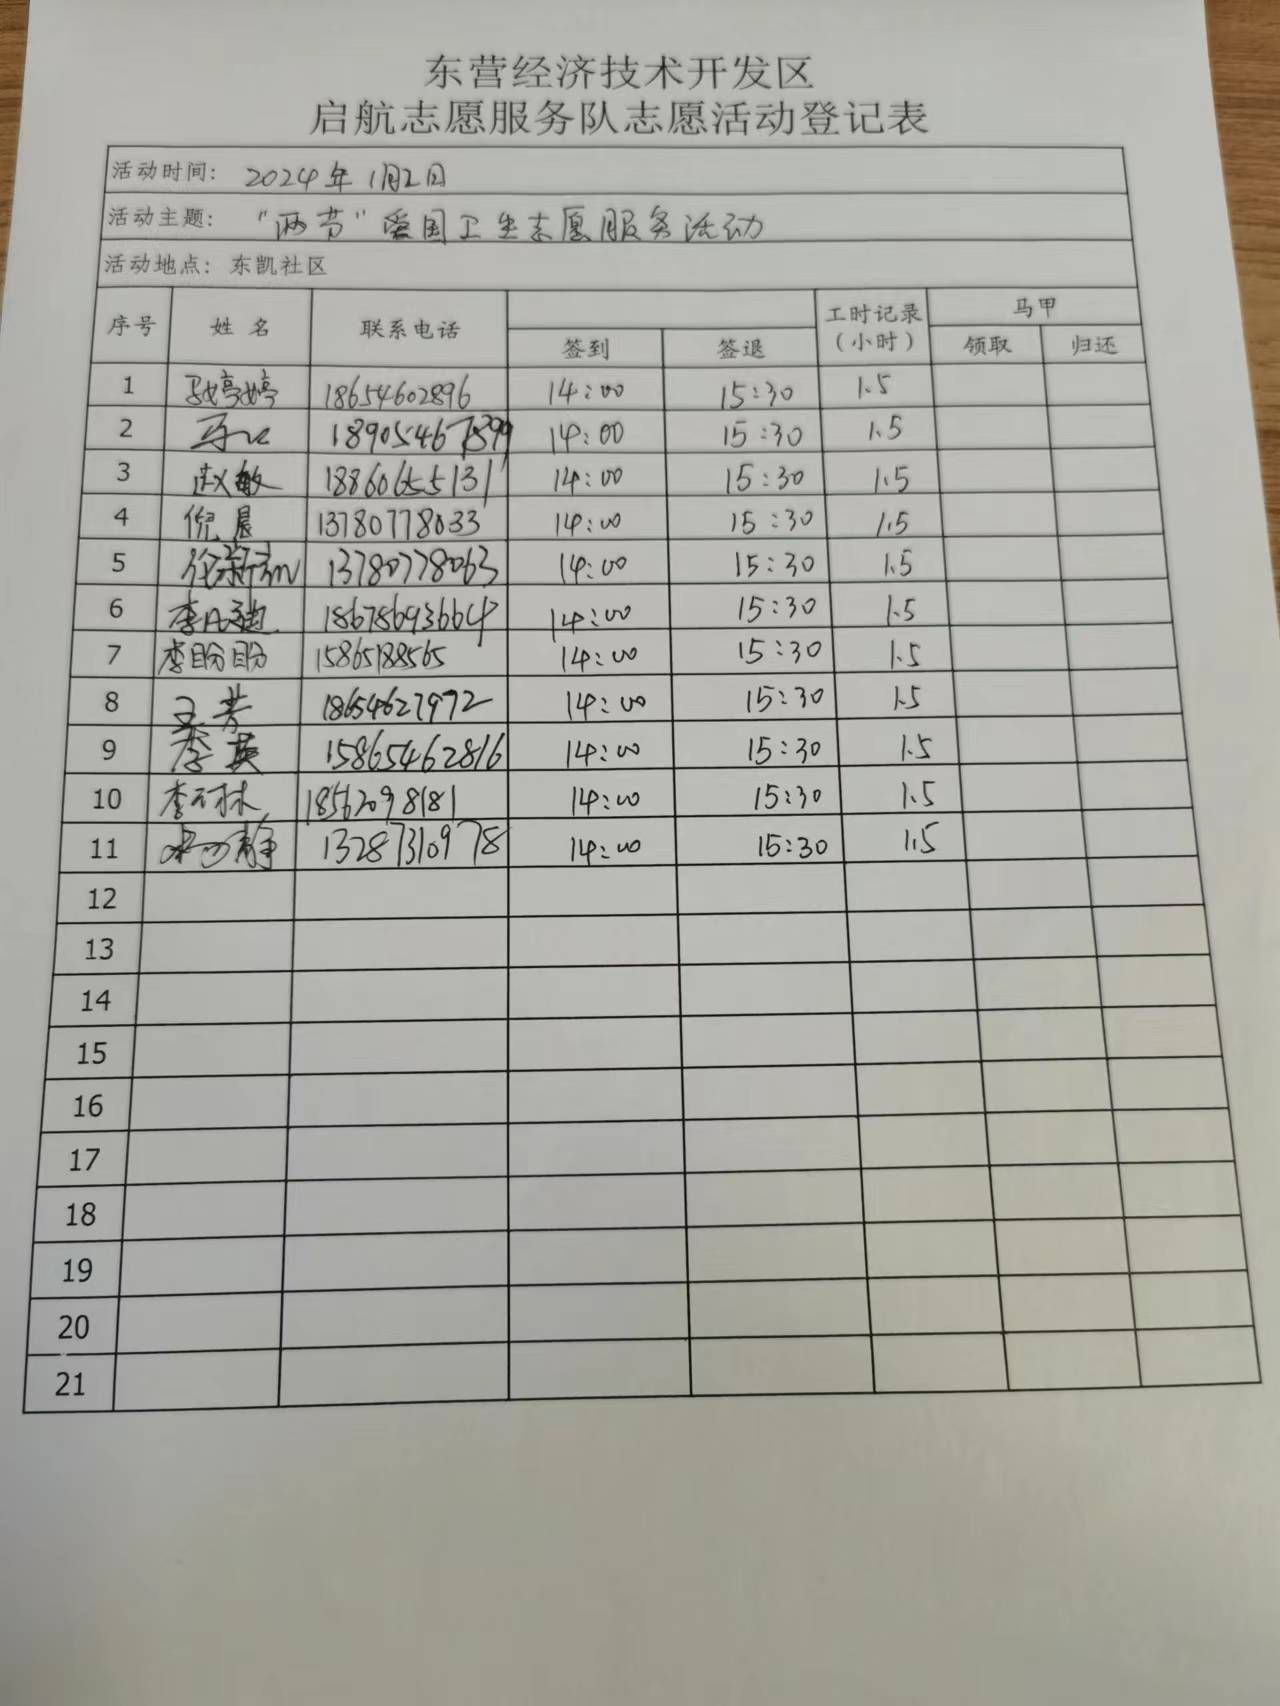 东营经济技术开发区
启航志愿服务队志愿活动登记表
活动时间: 2024年1月2日
活动主题: "两节"爱国卫生志愿服务活动
活动地点: 东凯社区
序号 姓名 联系电话 签到 签退 工时记录(小时) 马甲 领取 归还
1 婷婷 18654602896 14:00 15:30 1.5
2 14:00 15:30 1.5
3 赵敏 18860655131 14:00 15:30 1.5
4 倪晨 13780778033 14:00 15:30 1.5
5 13780778063 14:00 15:30 1.5
6 李 18678693664 14:00 15:30 1.5
7 李盼盼 15865188565 14:00 15:30 1.5
8 王芳 18654627972 14:00 15:30 1.5
9 李英 15865462816 14:00 15:30 1.5
10 李 18562098181 14:00 15:30 1.5
11 静 13287310978 14:00 15:30 1.5
12
13
14
15
16
17
18
19
20
21